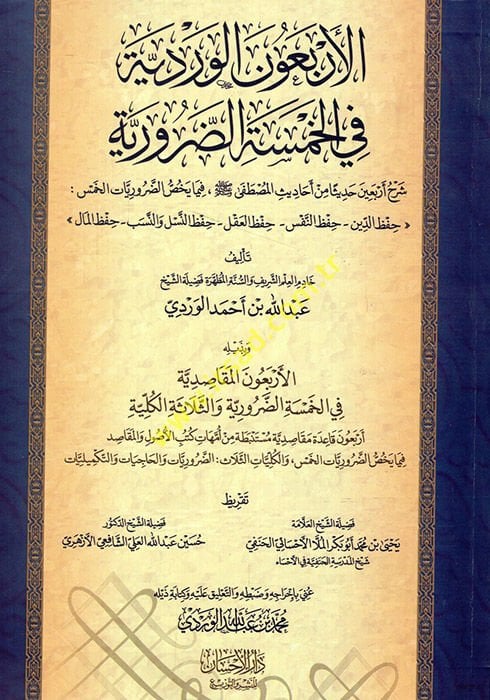 الأربعون الوردية
في الخمسة الضرورية
شرح أربعين حديثا من أحاديث المصطفى ﷺ، فيما يخص الضروريات الخمس:
« حفظ الدين - حفظ النفس - حفظ العقل - حفظ النسل والنسب - حفظ المال »
تأليف
خادم العلم الشريف والسنة المطهرة فضيلة الشيخ
عبد الله بن أحمد الوردي
وبذيله
الأربعون المقاصدية
في الخمسة الضرورية والثلاثة الكلية
أربعون قاعدة مقاصدية مستنبطة من أمهات كتب الأصول والمقاصد
فيما يخص الضروريات الخمس، والكليات الثلاث: الضروريات والحاجيات والتكميليات
تقريظ
فضيلة الشيخ العلامة
يحيى بن محمد أبو بكر الملا الأحسائي الحنفي
شيخ المدرسة الحنفية في الأحساء
فضيلة الشيخ الدكتور
حسين عبد الله العلي الشافعي الأزهري
عني بإخراجه وضبطه والتعليق عليه وكتابة ذيله
محمد بن عبد الله الوردي
دار الإحسان
للنشر والتوزيع